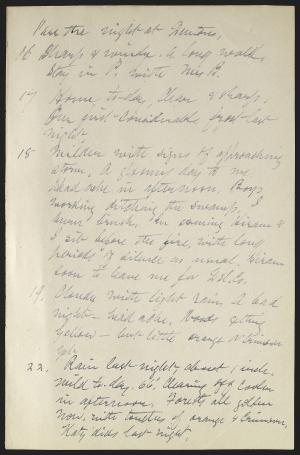 Pass the night at Kentons,
16 Sharp & windy. A long walk,
Stay in P. with Mrs B.
17 Home to-day, Clear & sharp.
Our first considerable frost last
night.
18 Milder with signs of approaching
storm. A gloomy day to me.
Head ache in afternoon. Boys
working ditching the swamp. I
burn brush. In evening Hiram &
I sit before the fire, with long
periods of silence as usual. Hiram
soon to leave me for
19. Cloudy with light rain. A bad
night - head ache. Woods getting
yellow - but little orange & crimson
yet.
22. Rain last night, about 1 inch.
mild to-day, 66°, clearing off & cooler
in afternoon. Forests all golden
now, with touches of orange & crimson,
Katy dids last night.